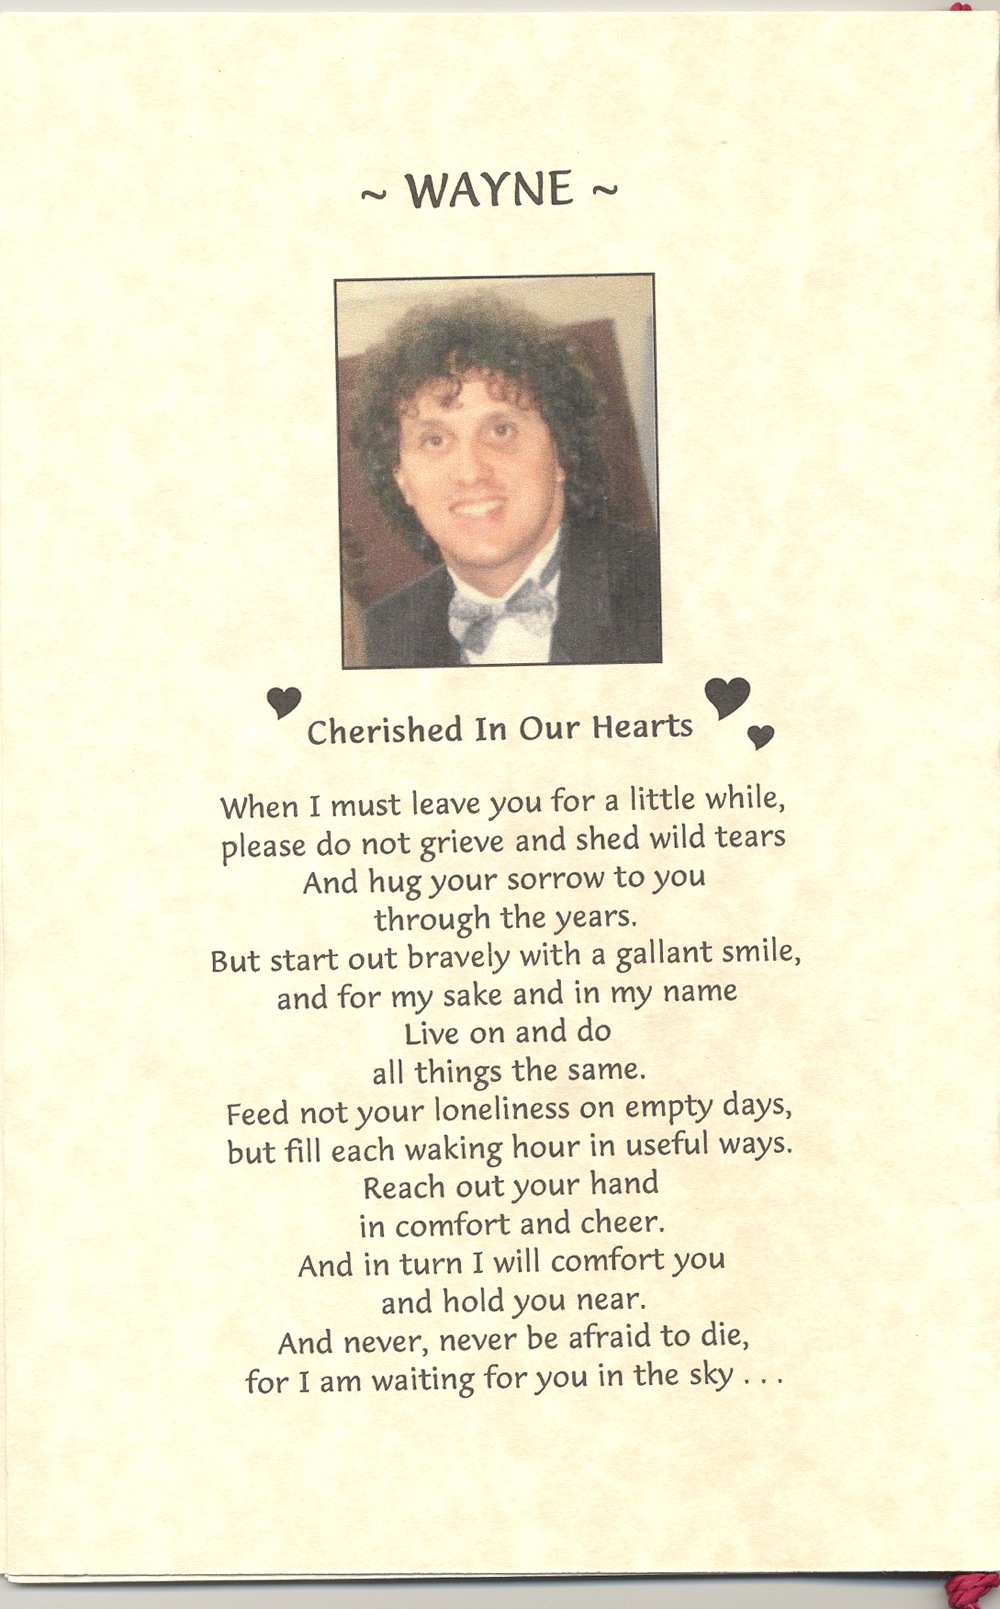 ~ WAYNE ~
Cherished In Our Hearts
When I must leave you for a little while,
please do not grieve and shed wild tears
And hug your sorrow to you
through the years.
But start out bravely with a gallant smile,
and for my sake and in my name
Live on and do
all things the same.
Feed not your loneliness on empty days,
but fill each waking hour in useful ways.
Reach out your hand
in comfort and cheer.
And in turn I will comfort you
and hold you near.
And never, never be afraid to die,
for I am waiting for you in the sky . . .